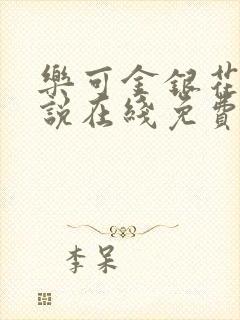 樂可金銀花
說在綫免費
李呆